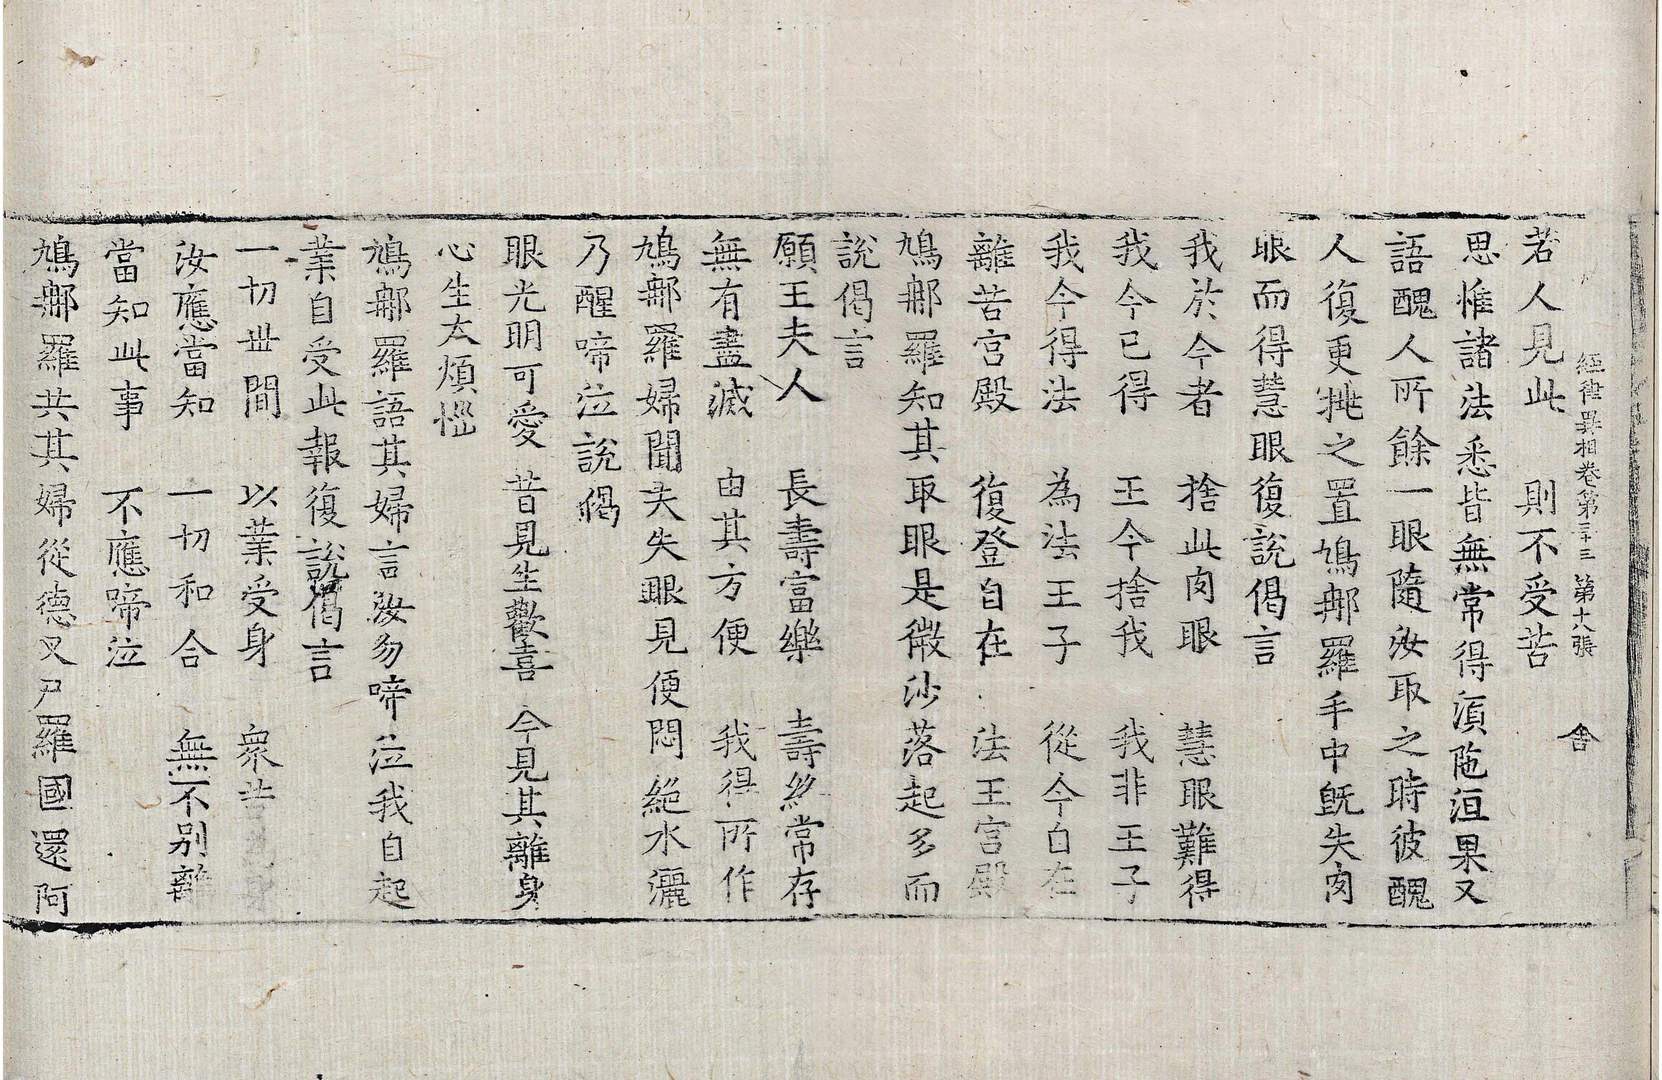 經律異相卷第三十三　第十八張　舍
若人見此　則不受苦
思惟諸法悉皆無常得湏陁洹果又
語醜人所餘一眼隨汝取之時彼醜
人復更挑之置鳩郍羅手中旣失肉
眼而得慧眼復說偈言
我於今者　捨此肉眼　慧眼難得
我今已得　王今捨我　我非王子
我今得法　為法王子　從今自在
離苦宮殿　復登自在　法王宮殿
鳩郍羅知其取眼是微沙落起多而
說偈言
願王夫人　長壽富樂　壽終常存
無有盡滅　由其方便　我得所作
鳩郍羅婦聞夫失眼見便悶絶水灑
乃醒啼泣說偈
眼光明可愛　昔見生歡喜　今見其離身
心生大煩惱
鳩郍羅語其婦言汝勿啼泣我自起
業自受此報復說偈言
一切丗間　以業受身　衆苦為身
汝應當知　一切和合　無不別離
當知此事　不應啼泣
鳩郍羅共其婦從德叉尸羅國還阿